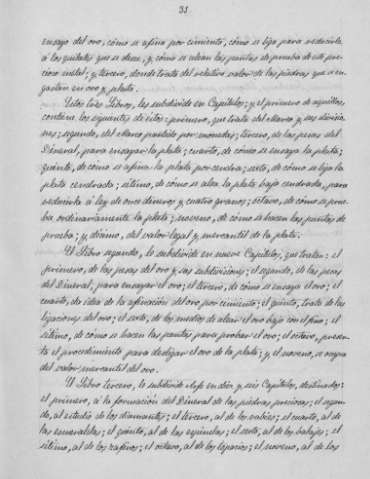 33
ensayo del oro, cómo se afina por cimiento, cómo se liga para reducirle
á los quilates que se desea, y cómo se labran las puntas de prueba de este pre-
cioso metal; y tercero, donde trata del relativo valor de las piedras que se en-
gastan en oro y plata.
Estos tres Libros, los subdivide en Capítulos; y el primero de aquéllos,
contiene los siguientes de éstos: primero, que trata del Marco y sus divisio-
nes; segundo, del Marco partido por monedas; tercero, de las pesas del
Dineral, para ensayar la plata; cuarto, de cómo se ensaya la plata;
quinto, de cómo se afina la plata por cendra; sexto, de cómo se liga la
plata cendrada; sétimo, de cómo se alea la plata baja cendrada, para
reducirla á ley de once dineros y cuatro granos; octavo, de cómo se prue-
ba ordinariamente la plata; noveno, de cómo se hacen las puntas de
prueba; y décimo, del valor legal y mercantil de la plata.
El Libro segundo, lo subdivide en nueve Capítulos, que tratan: el
primero, de las pesas del oro y sus subdivisiones; el segundo, de las pesas
del Dineral, para ensayar el oro; el tercero, de cómo se ensaya el oro; el
cuarto, da idea de la afinación del oro por cimiento; el quinto, trata de las
ligaciones del oro; el sexto, de los medios de alear el oro bajo con el fino; el
sétimo, de cómo se hacen las puntas para probar el oro; el octavo, presen-
ta el procedimiento para desligar el oro de la plata; y el noveno, se ocupa
del valor mercantil del oro.
El Libro tercero, lo subdivide Arfe en diez y seis Capítulos, destinados:
el primero, á la formación del Dineral de las piedras preciosas; el segun-
do, al estudio de los diamantes; el tercero, al de los rubíes; el cuarto, al de
las esmeraldas; el quinto, al de las espinelas; el sexto, al de los balajes; el
sétimo, al de los zafiros; el octavo, al de los topacios; el noveno, al de los